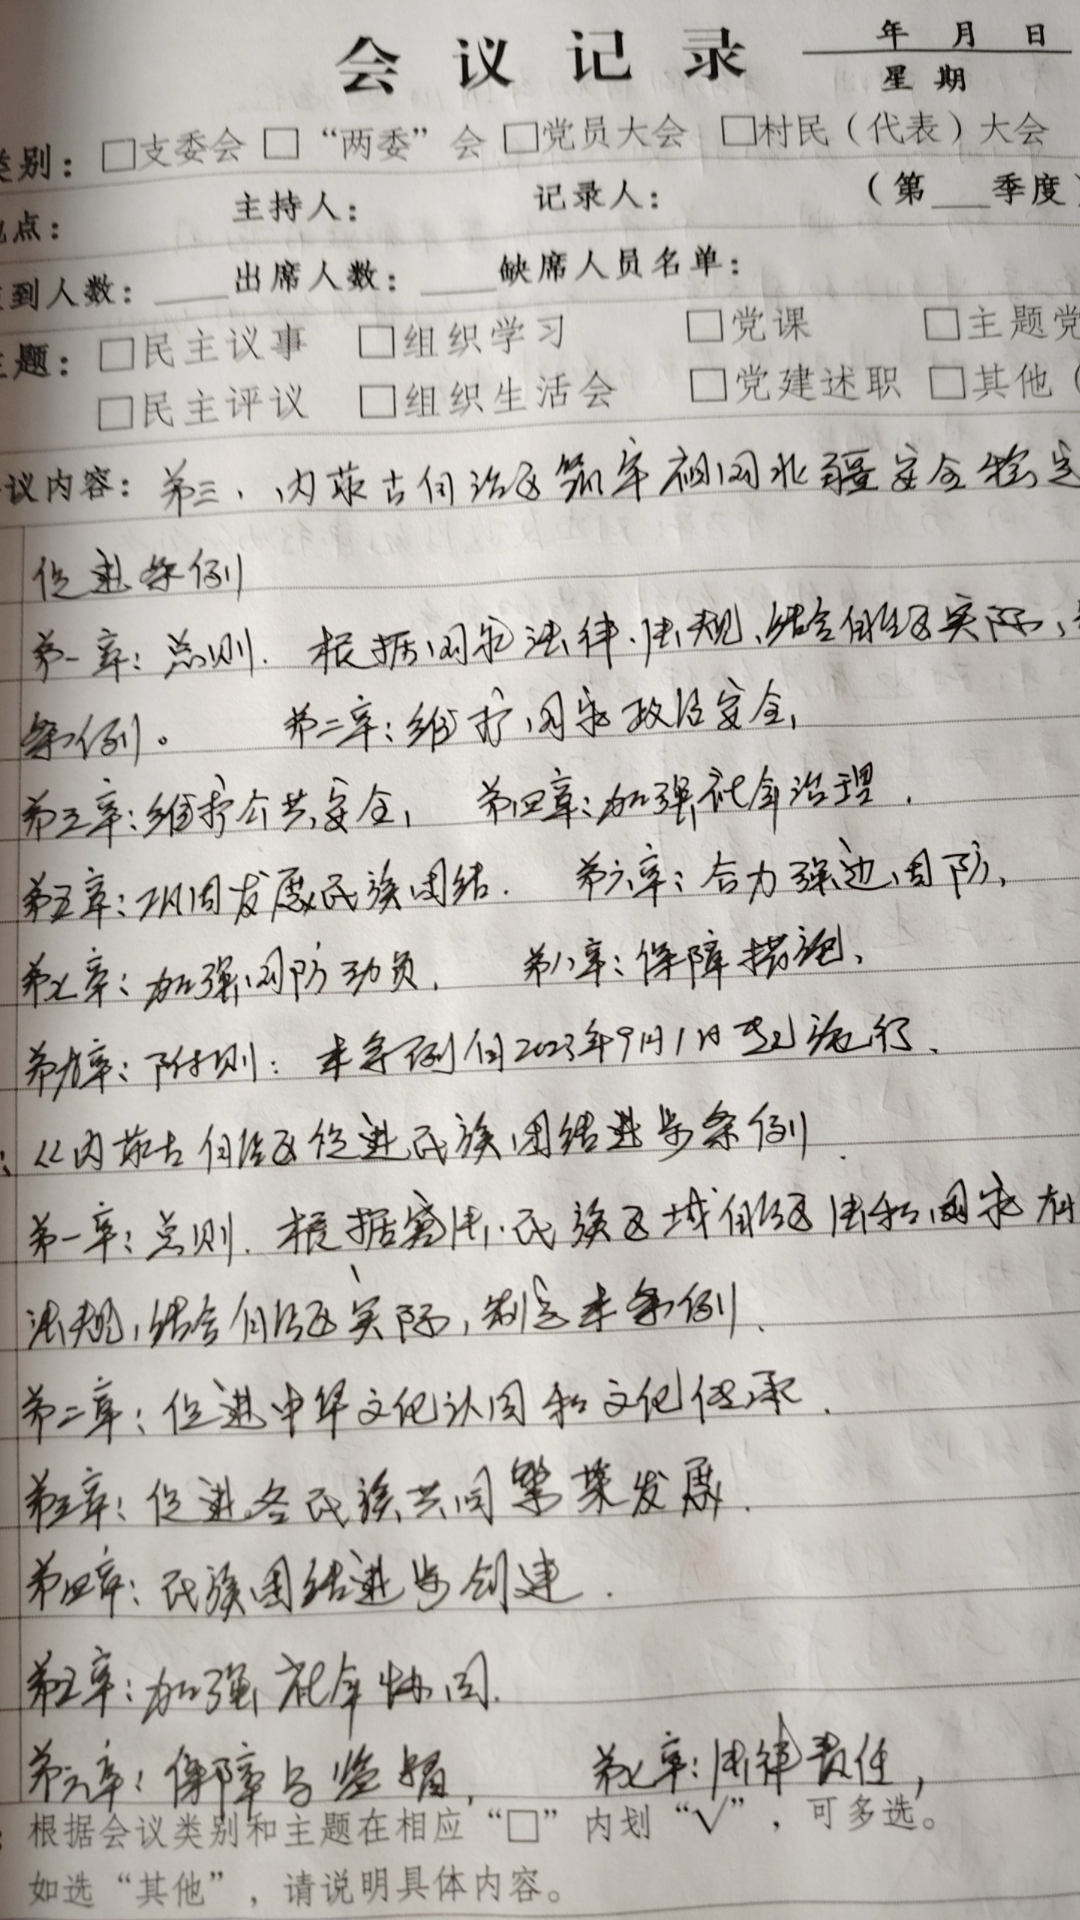 会议记录
年 月 日
星期
类别：□支委会 □“两委”会 □党员大会 □村民（代表）大会
地点： 主持人： 记录人： （第___季度）
应到人数：____出席人数：____缺席人员名单：
主题：□民主议事 □组织学习 □党课 □主题党
□民主评议 □组织生活会 □党建述职 □其他（
会议内容：第三、内蒙古自治区筑牢祖国北疆安全稳定
促进条例
第一章：总则. 根据国家法律.法规,结合自治区实际,
条例。 第二章:维护国家政治安全,
第三章:维护公共安全, 第四章:加强社会治理.
第五章:巩固发展民族团结. 第六章:合力强边固防,
第七章:加强国防动员. 第八章:保障措施,
第九章:附则: 本条例自2023年9月1日起施行.
《内蒙古自治区促进民族团结进步条例
第一章:总则. 根据宪法.民族区域自治区法和国家有
法规,结合自治区实际,制定本条例.
第二章:促进中华文化认同和文化传承.
第三章:促进各民族共同繁荣发展.
第四章:民族团结进步创建.
第五章:加强社会协同.
第六章:保障与监督, 第七章:法律责任,
：根据会议类别和主题在相应“□”内划“√”，可多选。
如选“其他”，请说明具体内容。